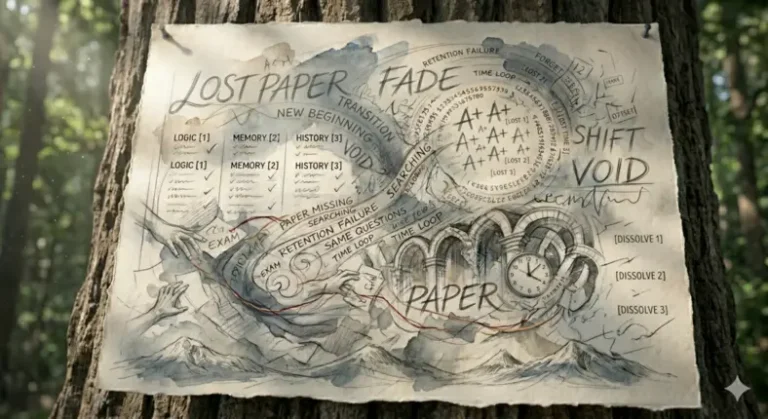 LOST PAPER FADE
RETENTION FAILURE
TIME LOOP
TRANSITION
NEW BEGINNING
VOID
LOGIC [1] MEMORY [2] HISTORY [3]
LOGIC [1] MEMORY [2] HISTORY [3]
A+ A+
[LOST 1]
A+ A+ A+ A+
[LOST 2]
A+ A+ A+
[LOST 3]
SHIFT
VOID
SEARCHING
PAPER MISSING
SEARCHING
RETENTION FAILURE
SAME QUESTIONS
TIME LOOP
TIME LOOP
EXAM
EXAM
PAPER
[DISSOLVE 1]
[DISSOLVE 2]
[DISSOLVE 3]